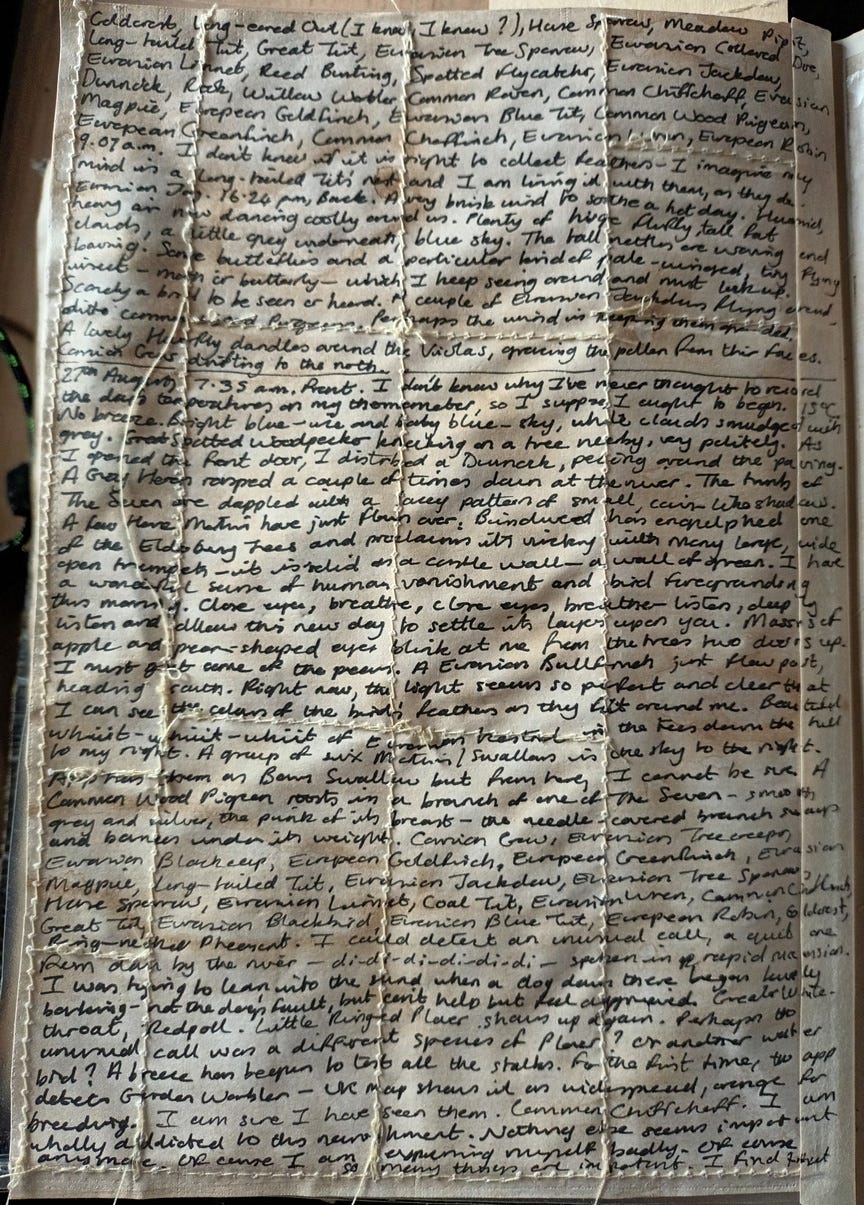 Goldcrest, Long-eared Owl (I know, I know?), House Sparrow, Meadow Pipit,
Long-tailed Tit, Great Tit, Eurasian Tree Sparrow, Eurasian Collared Dove,
Eurasian Linnet, Reed Bunting, Spotted Flycatcher, Eurasian Jackdaw,
Dunnock, Rook, Willow Warbler, Common Raven, Common Chiffchaff, Eurasian
Magpie, European Goldfinch, Eurasian Blue Tit, Common Wood Pigeon,
European Greenfinch, Common Chaffinch, Eurasian Wren, European Robin
9.07 a.m. I don't know if it is right to collect feathers – I imagine my
mind is a Long-tailed Tit's nest and I am lining it with them, as they do.
Eurasian Jay. 16.24 pm, Back. A very brisk wind to soothe a hot day. Humid,
heavy air now dancing coolly around us. Plenty of huge fluffy tall fat
clouds, a little grey underneath, blue sky. The tall nettles are waving and
bowing. Some butterflies and a particular kind of pale-winged, tiny flying
insect – moth or butterfly – which I keep seeing around and must look up.
Scarcely a bird to be seen or heard. A couple of Eurasian Jackdaws flying around –
ditto Common Wood Pigeons. Perhaps the wind is keeping them
A lovely Hoverfly dandles around the Violas, grazing the pollen from their faces.
Carrion Crows drifting to the north.
27th August 7.35 a.m. Front. I don't know why I've never thought to record
the day's temperatures on my thermometer, so I suppose I ought to begin. 13°C
No breeze. Bright blue – ice and baby blue – sky, white clouds smudged with
grey. Great Spotted Woodpecker knocking on a tree nearby, very politely. As
I opened the front door, I disturbed a Dunnock, pecking around the paving.
A Grey Heron rasped a couple of times down at the river. The trunks of
The Seven are dappled with a lacey pattern of small, coin-like shadows.
A few House Martins have just flown over. Bindweed has engulphed one
of the Elderberry Trees and proclaims its victory with many large, wide
open trumpets – it is solid as a castle wall – a wall of green. I have
a wonderful sense of human vanishment and bird foregrounding
this morning. Close eyes, breathe, close eyes, breathe – listen, deeply
listen and allow this new day to settle its layers upon you. Masses of
apple and pear-shaped eyes blink at me from the trees two doors up.
I must get some of the pears. A Eurasian Bullfinch just flew past,
heading south. Right now, the light seems so perfect and clear that
I can see the colours of the birds' feathers as they flit around me. Beautiful
whiit-whiit-whiit of Eurasian Kestrel in the trees down the hill
to my right. A group of six Martins/Swallows in the sky to the right.
App has them as Barn Swallow but from here, I cannot be sure. A
Common Wood Pigeon roosts in a branch of one of The Seven – smooth
grey and silver, the pink of its breast – the needle-covered branch swoops
and bounces under its weight. Carrion Crow, Eurasian Treecreeper
Eurasian Blackcap, European Goldfinch, European Greenfinch, Eurasian
Magpie, Long-tailed Tit, Eurasian Jackdaw, Eurasian Tree Sparrow
House Sparrow, Eurasian Linnet, Coal Tit, Eurasian Wren, Common Chaffinch,
Great Tit, Eurasian Blackbird, Eurasian Blue Tit, European Robin, Goldcrest,
Ring-necked Pheasant. I could detect an unusual call, a quiet one
from down by the river – di-di-di-di-di-di – spoken in rapid succession.
I was trying to lean into the sound when a dog down there began
barking – not the dog's fault, but can't help but feel aggrieved. Greater White-
throat, Redpoll. Little Ringed Plover shows up again. Perhaps the
unusual call was a different species of Plover? Or another water
bird? A breeze has begun to test all the stalks. For the first time, the app
detects Garden Warbler – UK map shows it as widespread, orange for
breeding. I am sure I have seen them. Common Chiffchaff. I am
wholly addicted to this nourishment. Nothing else seems important
anymore. Of course I am expressing myself badly – of course
so many things are important. I find that